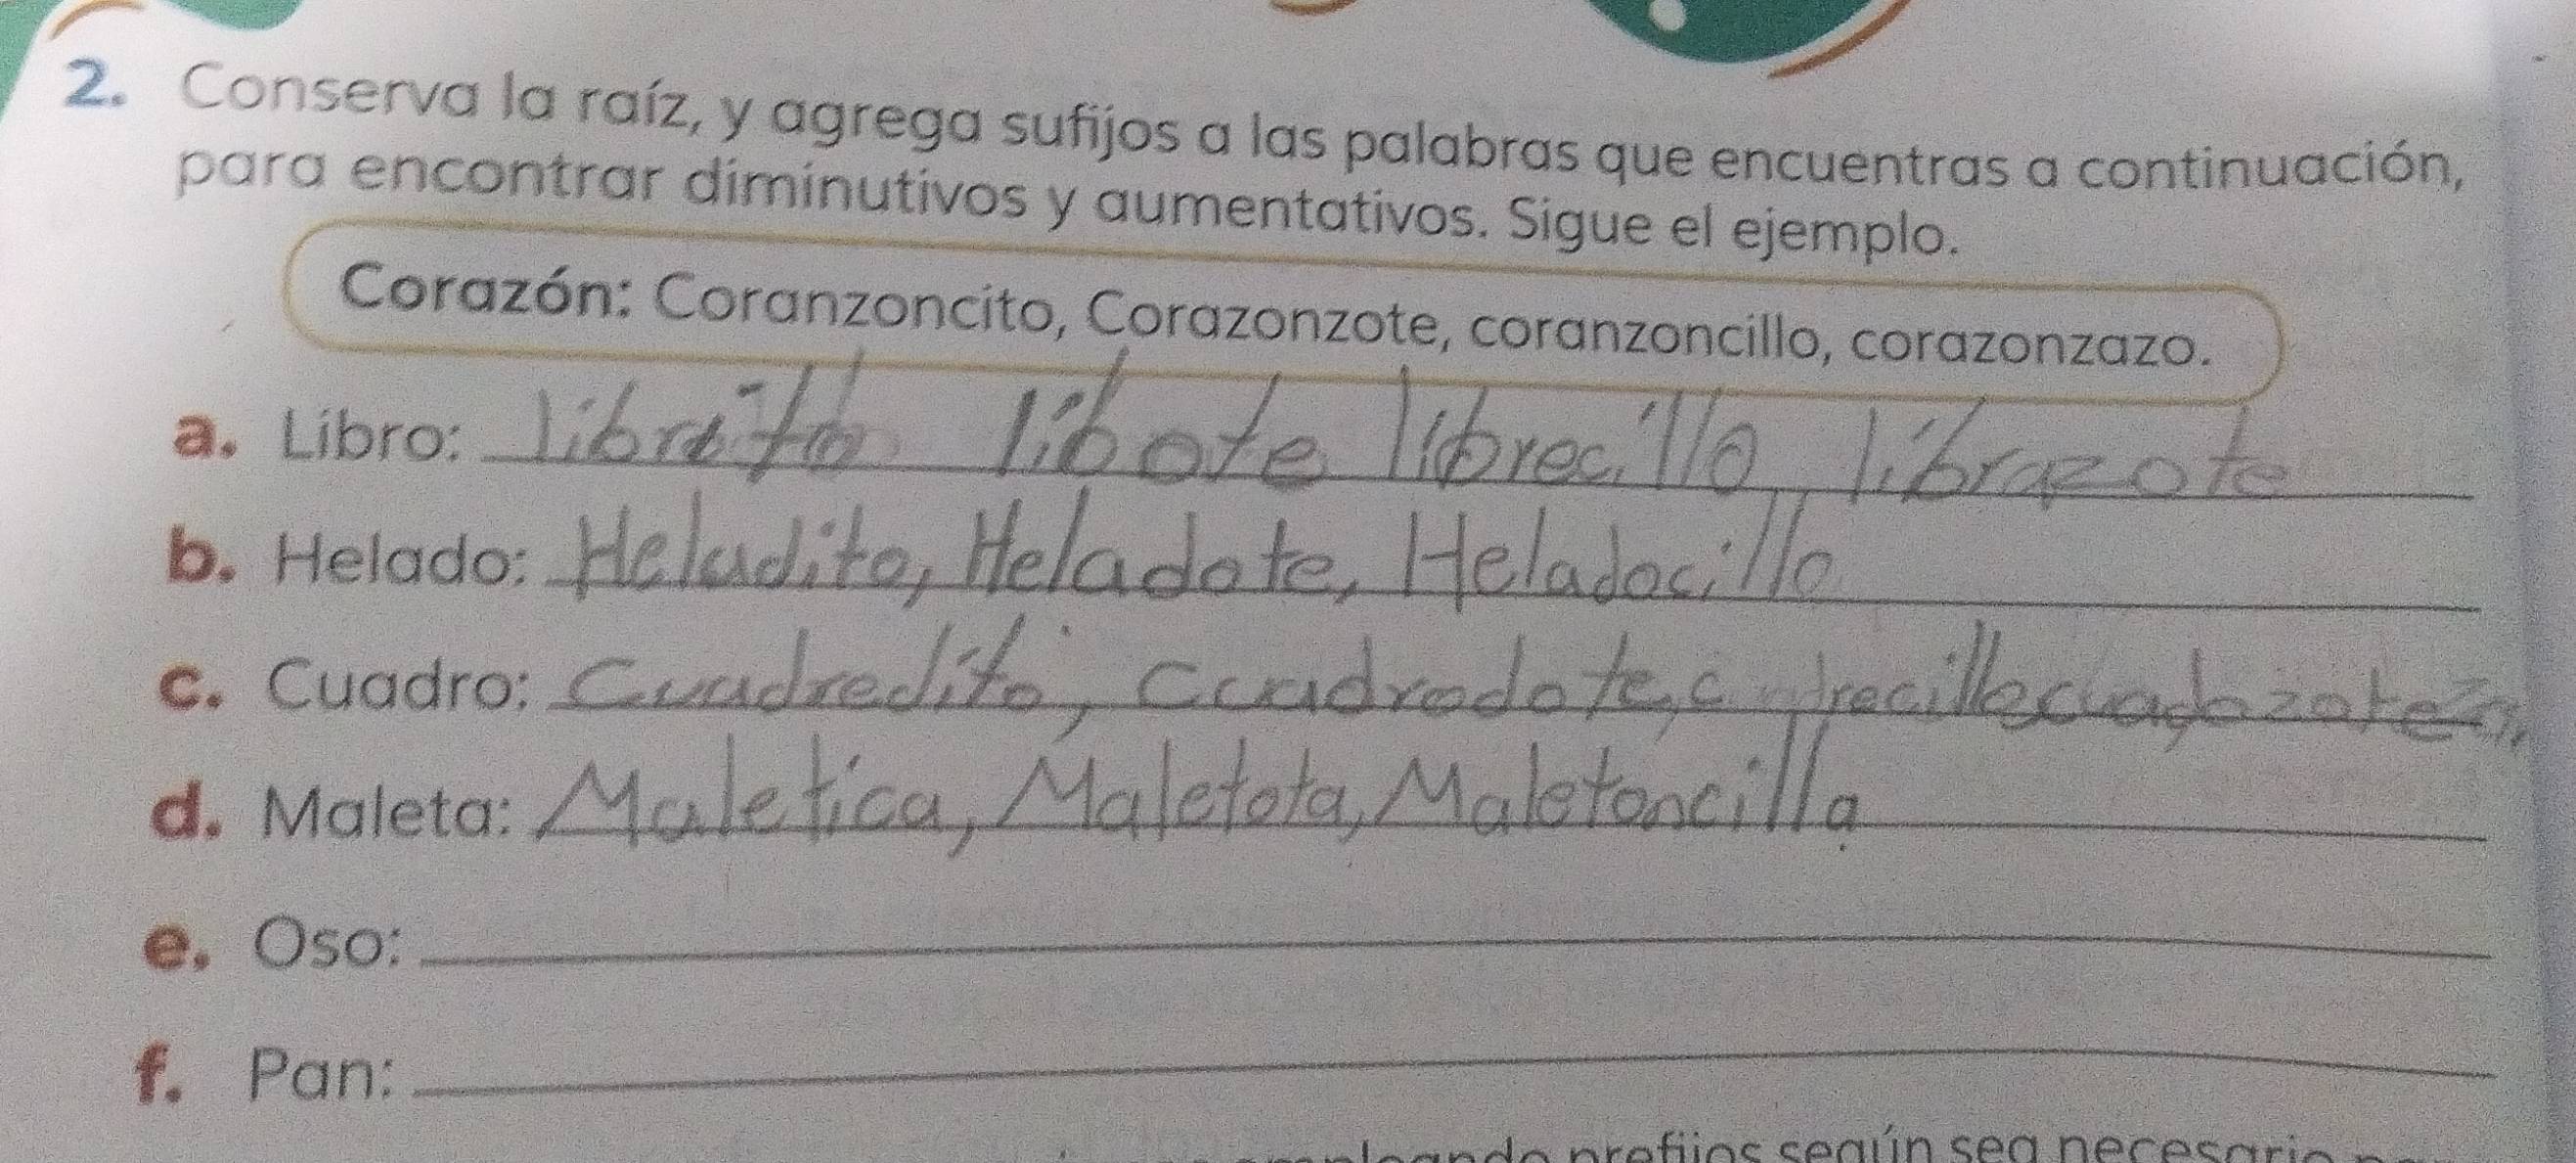 2. Conserva la raíz, y agrega sufijos a las palabras que encuentras a continuación,
para encontrar diminutivos y aumentativos. Sigue el ejemplo.
Corazón: Coranzoncito, Corazonzote, coranzoncillo, corazonzazo.
a. Libro: libote librecillo, librazote
b. Helado: Heladito, Heladote, Heladocillo
c. Cuadro: Cuadredito, Cuadrodote,
d. Maleta: Maletica, Maletota, Maletoncilla
e. Oso:
f. Pan:
prefijos según sea necesario